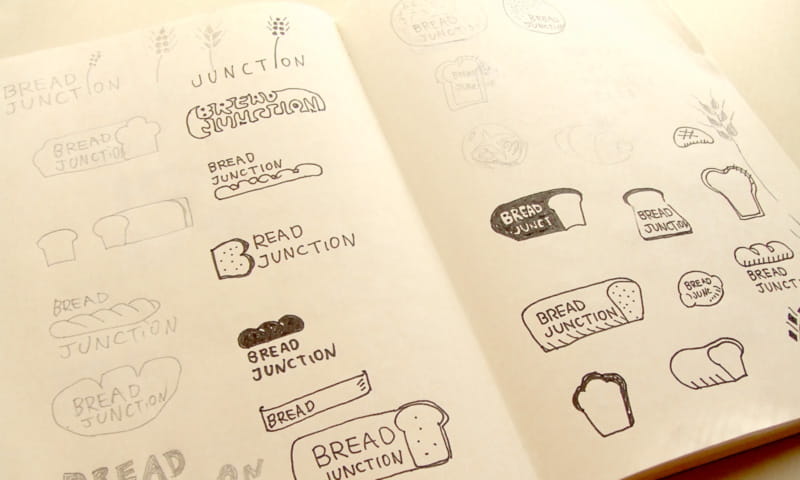 BREAD
JUNCTION
JUNCTION
BREAD
JUNCTION
BREAD
JUNCTION
BREAD
JUNCTION
BREAD
JUNCTION
BREAD
JUNCTION
BREAD
JUNCTION
BREAD
JUNCTION
BREAD
BREAD
JUNCTION
BREAD
ON
BREAD
JUNCTION
BREAD
JUNCTION
BREAD
BREAD
JUNCT
BREAD
JUNCTION
BREAD
JUNCTION
BREAD
JUNC
BREAD
JUNCT